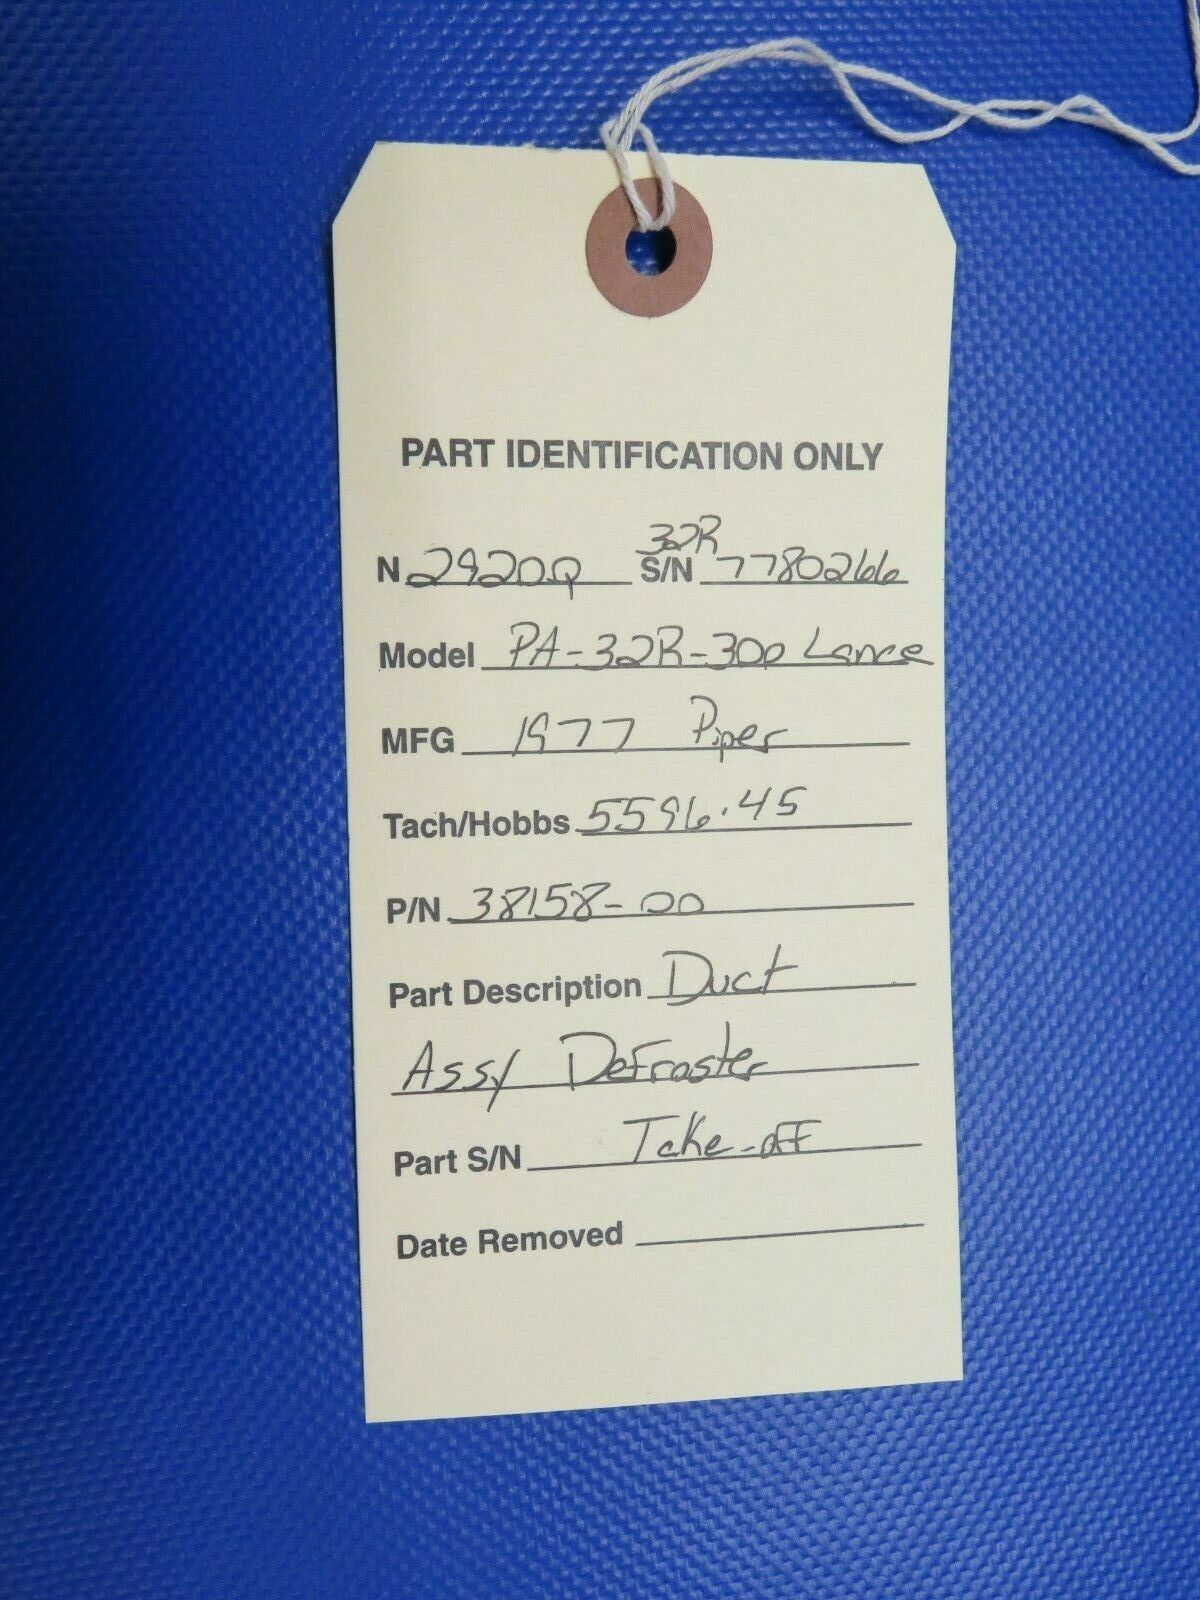 PART IDENTIFICATION ONLY
32R
N 2920Q S/N 7780266
Model PA-32R-300 Lance
MFG 1977 Piper
Tach/Hobbs 5596.45
P/N 38158-00
Part Description Duct
Assy Defroster
Part S/N Take-off
Date Removed